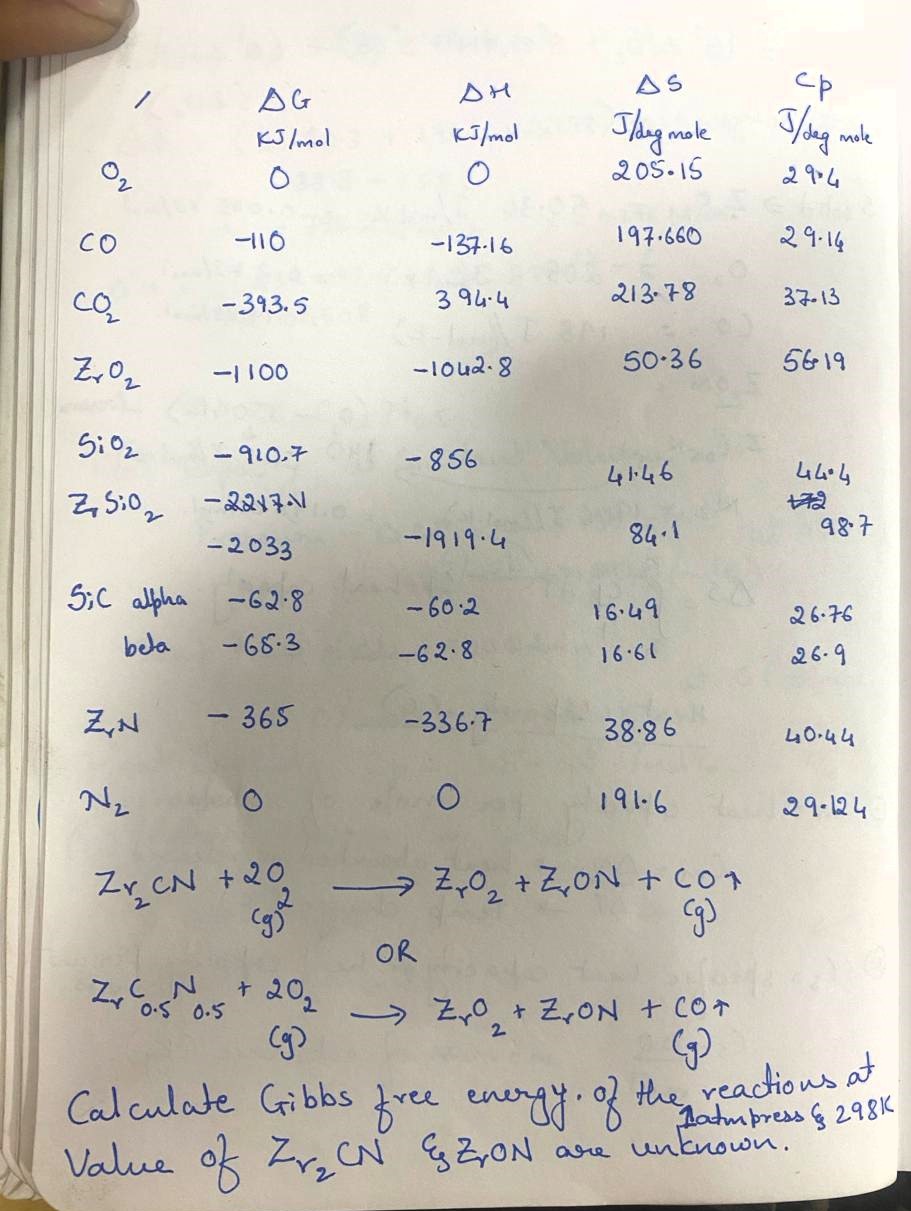 ΔG ΔH ΔS Cp
KJ/mol KJ/mol J/deg mole J/deg mole
O2 0 0 205.15 29.4
CO -110 -137.16 197.660 29.14
CO2 -393.5 394.4 213.78 37.13
ZrO2 -1100 -1042.8 50.36 56.19
SiO2 -910.7 -856 41.46 44.4
ZrSiO2 -2033 -1919.4 84.1 98.7
SiC alpha -62.8 -60.2 16.49 26.76
beta -65.3 -62.8 16.61 26.9
ZrN -365 -336.7 38.86 40.44
N2 0 0 191.6 29.124
Zr2CN + 2O2 (g) → ZrO2 + ZrON + CO↑ (g)
OR
ZrC0.5N0.5 + 2O2 (g) → ZrO2 + ZrON + CO↑ (g)
Calculate Gibbs free energy. of the reactions at
1atm press & 298K
Value of Zr2CN & ZrON are unknown.